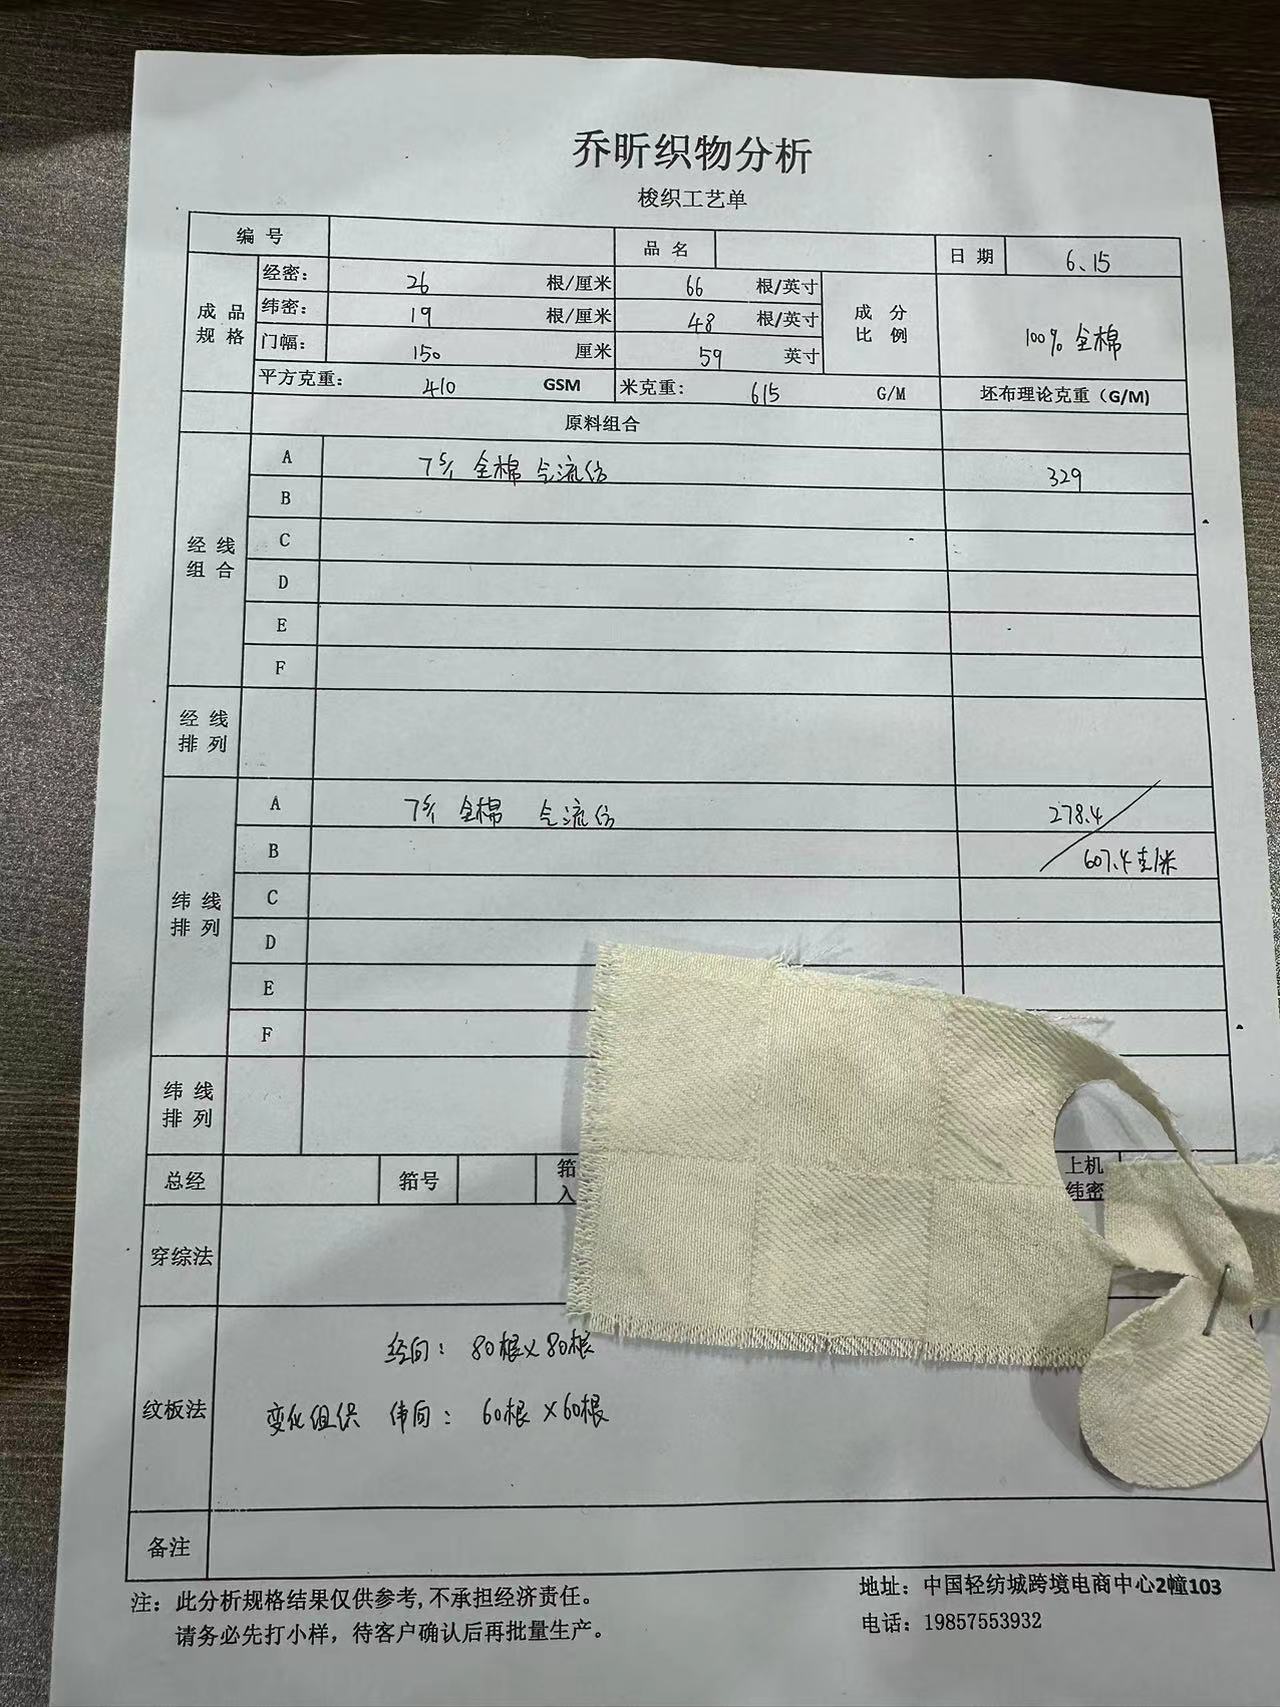 乔昕织物分析
梭织工艺单
编号 品名 日期 6、15
成品规格 经密： 26 根/厘米 66 根/英寸 成分比例 100% 全棉
纬密： 19 根/厘米 48 根/英寸
门幅： 150 厘米 59 英寸
平方克重： 410 GSM 米克重： 615 G/M 坯布理论克重（G/M)
原料组合
经线组合 A 7S/1 全棉 气流仿 329
B
C
D
E
F
经线排列
纬线排列 A 7S/1 全棉 气流仿 278.4
B 607.4克/米
C
D
E
F
纬线排列
总经 筘号 筘入 上机纬密
穿综法
纹板法 经向： 80根×80根
变化组织 纬向： 60根×60根
备注
注：此分析规格结果仅供参考,不承担经济责任。
请务必先打小样，待客户确认后再批量生产。
地址：中国轻纺城跨境电商中心2幢103
电话：19857553932